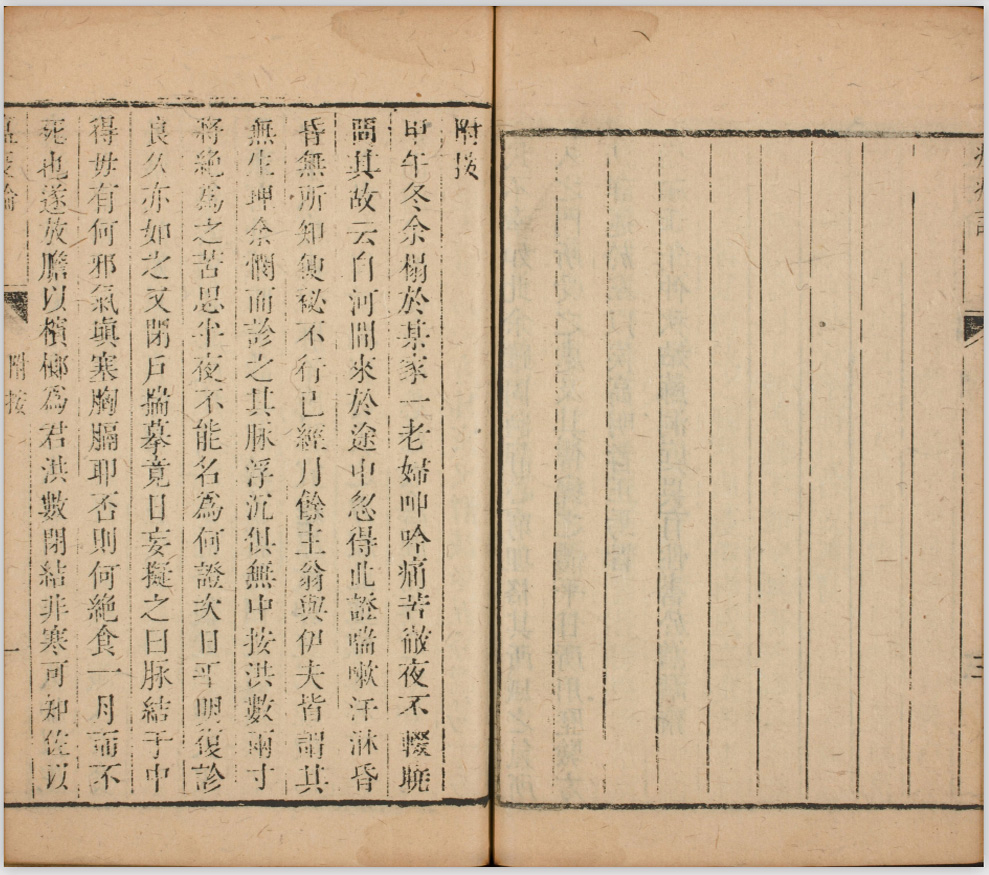 附按
甲午冬余榻於某家一老婦呻吟痛苦徹夜不輟曉
問其故云自河間來於途中忽得此證喘嗽汗淋昏
昏無所知便秘不行已經月餘主翁與伊夫皆謂其
無生理余憫而診之其脉浮沉俱無中按洪數兩寸
將絶爲之苦思半夜不能名爲何證次日平明復診
良久亦如之又閉戸揣摹竟日妄擬之曰脉結于中
得毋有何邪氣塡塞胸膈耶否則何絶食一月而不
死也遂放膽以檳榔爲君洪數閉結非寒可知佐以
附按
一
三